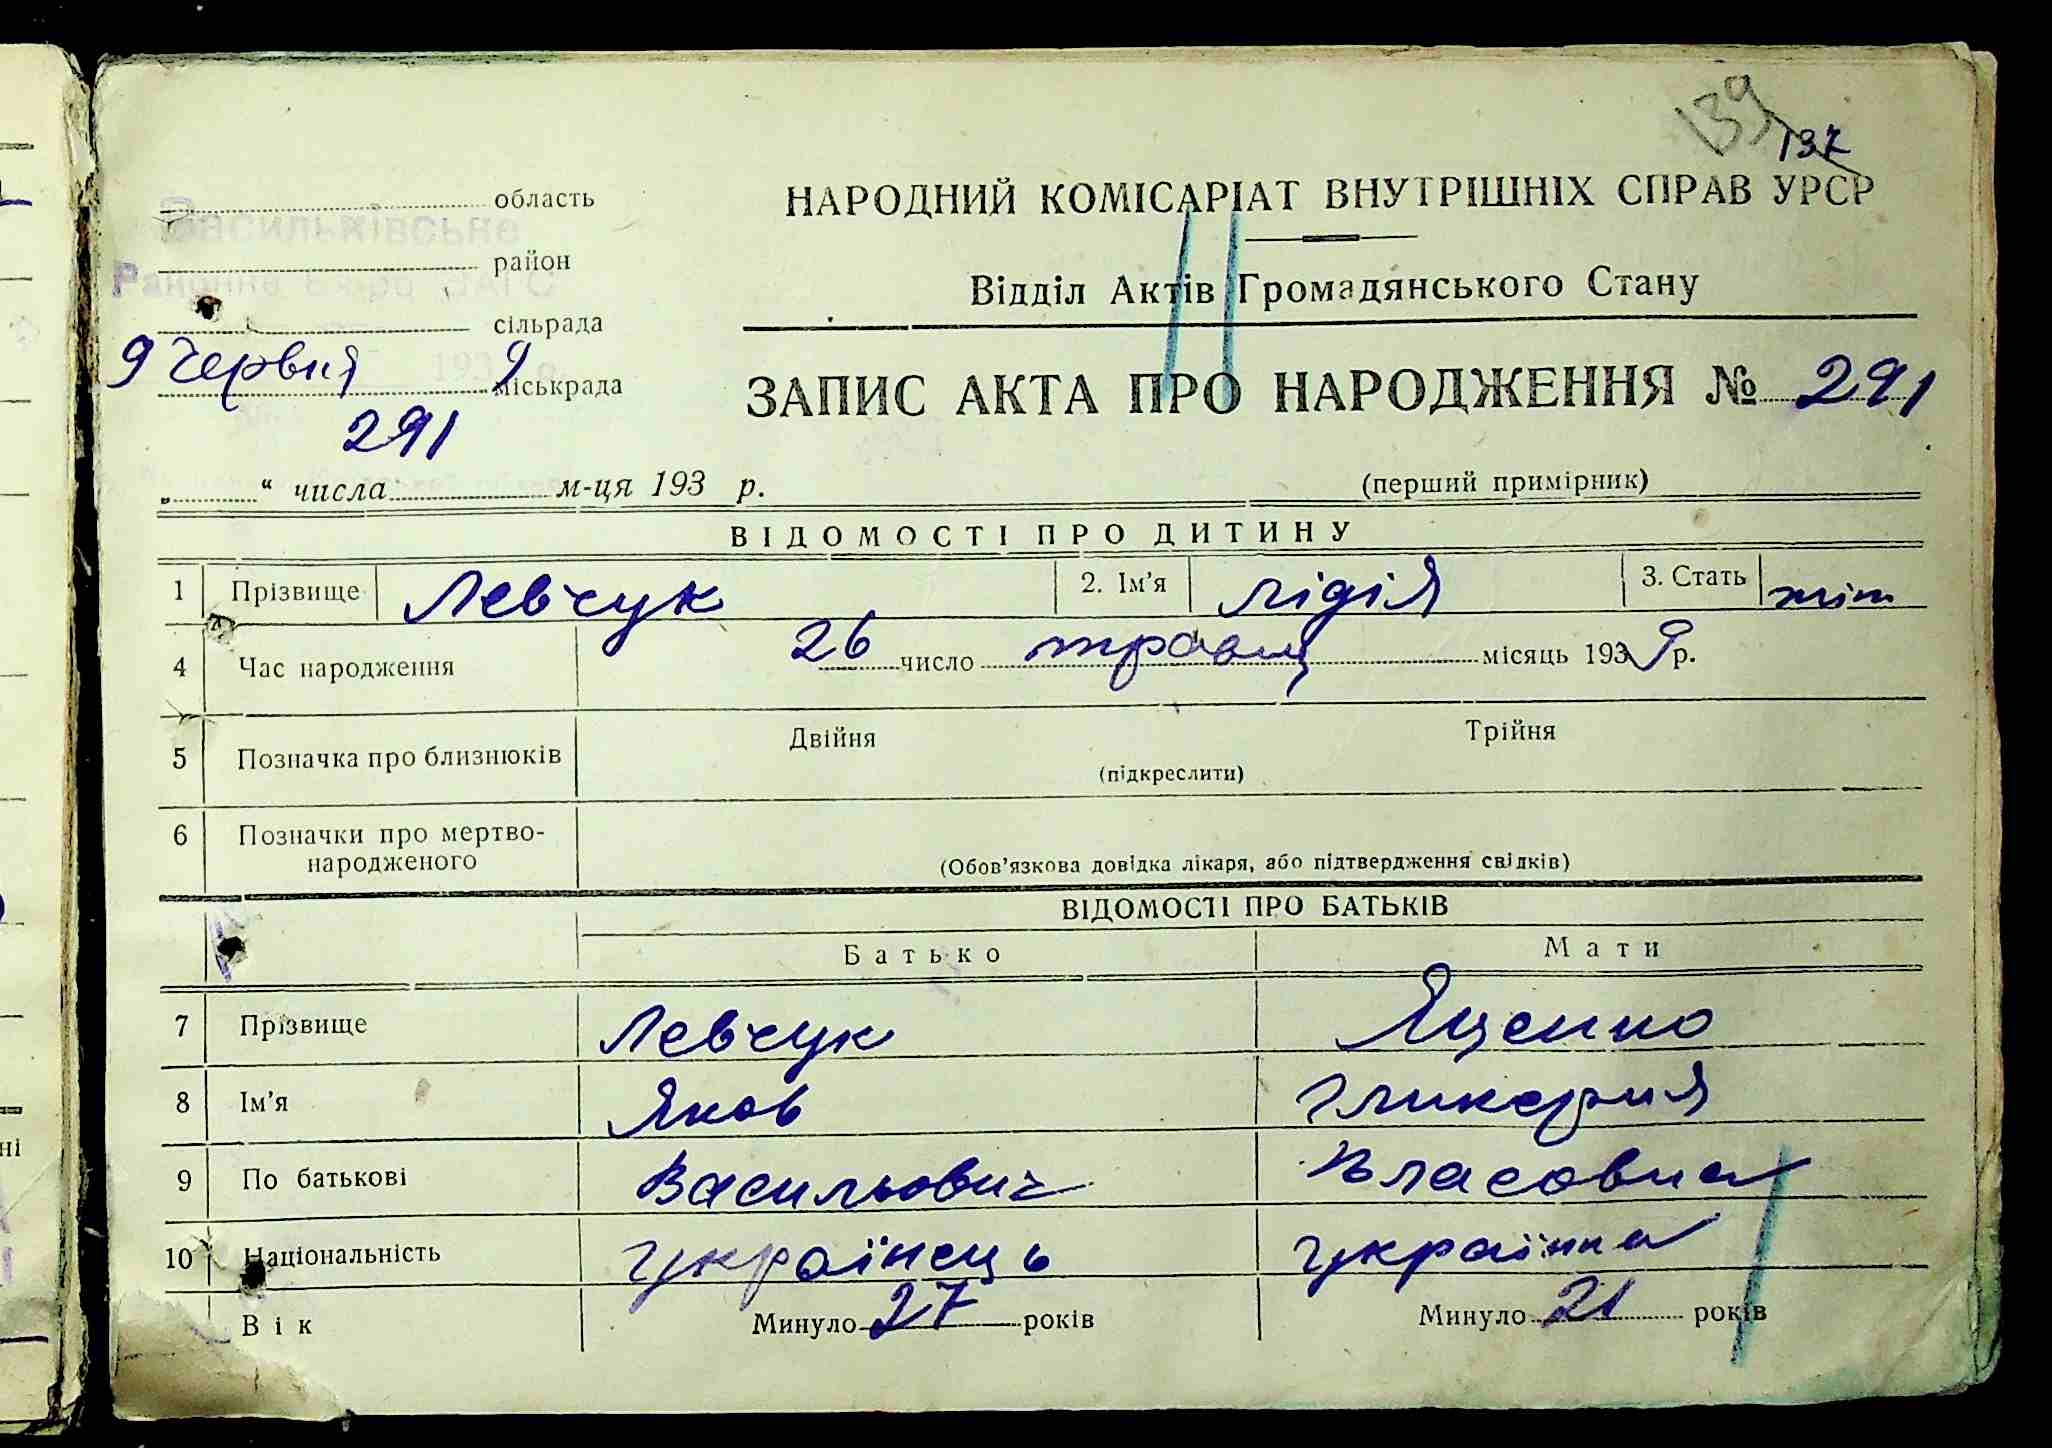 139
137
область
Васильківське
район
Районне Бюро ЗАГС
сільрада
9 Червня 193 9 р.
міськрада
291
„ “ числа м-ця 193 р.
НАРОДНИЙ КОМІСАРІАТ ВНУТРІШНІХ СПРАВ УРСР
Відділ Актів Громадянського Стану
ЗАПИС АКТА ПРО НАРОДЖЕННЯ № 291
(перший примірник)
ВІДОМОСТІ ПРО ДИТИНУ
1 Прізвище Левчук 2. Ім'я Лідія 3. Стать жін
4 Час народження 26 число травц місяць 1939 р.
5 Позначка про близнюків Двійня Трійня
(підкреслити)
6 Позначки про мертво-
народженого
(Обов'язкова довідка лікаря, або підтвердження свідків)
ВІДОМОСТІ ПРО БАТЬКІВ
Батько Мати
7 Прізвище Левчук Яценко
8 Ім'я Яков Гликерия
9 По батькові Васильович Власовна
10 Національність українець українка
Вік Минуло 27 років Минуло 21 років
ні